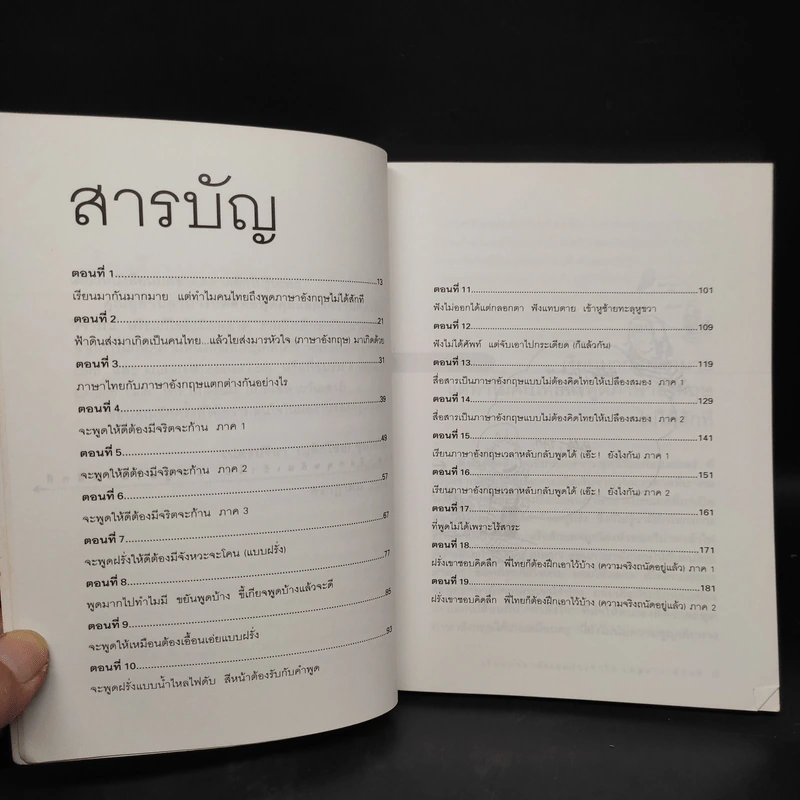 สารบัญ
ตอนที่ 1....................13
เรียนมากันมากมาย แต่ทำไมคนไทยถึงพูดภาษาอังกฤษไม่ได้สักที
ตอนที่ 2....................21
ฟ้าดินส่งมาเกิดเป็นคนไทย...แล้วไยส่งมารหัวใจ (ภาษาอังกฤษ) มาเกิดด้วย
ตอนที่ 3....................31
ภาษาไทยกับภาษาอังกฤษแตกต่างกันอย่างไร
ตอนที่ 4....................39
จะพูดให้ดีต้องมีจริตจะก้าน ภาค 1
ตอนที่ 5....................49
จะพูดให้ดีต้องมีจริตจะก้าน ภาค 2
ตอนที่ 6....................57
จะพูดให้ดีต้องมีจริตจะก้าน ภาค 3
ตอนที่ 7....................67
จะพูดฝรั่งให้ดีต้องมีจังหวะจะโคน (แบบฝรั่ง)
ตอนที่ 8....................77
พูดมากไปทำไมมี ขยันพูดบ้าง ขี้เกียจพูดบ้างแล้วจะดี
ตอนที่ 9....................85
จะพูดให้เหมือนต้องเอื้อนเอ่ยแบบฝรั่ง
ตอนที่ 10....................93
จะพูดฝรั่งแบบน้ำไหลไฟดับ สีหน้าต้องรับกับคำพูด
ตอนที่ 11....................101
ฟังไม่ออกได้แต่กลอกตา ฟังแทบตาย เข้าหูซ้ายทะลุหูขวา
ตอนที่ 12....................109
ฟังไม่ได้ศัพท์ แต่จับเอาไปกระเดียด (ก็แล้วกัน)
ตอนที่ 13....................119
สื่อสารเป็นภาษาอังกฤษแบบไม่ต้องคิดไทยให้เปลืองสมอง ภาค 1
ตอนที่ 14....................129
สื่อสารเป็นภาษาอังกฤษแบบไม่ต้องคิดไทยให้เปลืองสมอง ภาค 2
ตอนที่ 15....................141
เรียนภาษาอังกฤษเวลาหลับกลับพูดได้ (เอ๊ะ! ยังไงกัน) ภาค 1
ตอนที่ 16....................151
เรียนภาษาอังกฤษเวลาหลับกลับพูดได้ (เอ๊ะ! ยังไงกัน) ภาค 2
ตอนที่ 17....................161
ที่พูดไม่ได้เพราะไร้สาระ
ตอนที่ 18....................171
ฝรั่งเขาชอบคิดลึก พี่ไทยก็ต้องฝึกเอาไว้บ้าง (ความจริงถนัดอยู่แล้ว) ภาค 1
ตอนที่ 19....................181
ฝรั่งเขาชอบคิดลึก พี่ไทยก็ต้องฝึกเอาไว้บ้าง (ความจริงถนัดอยู่แล้ว) ภาค 2